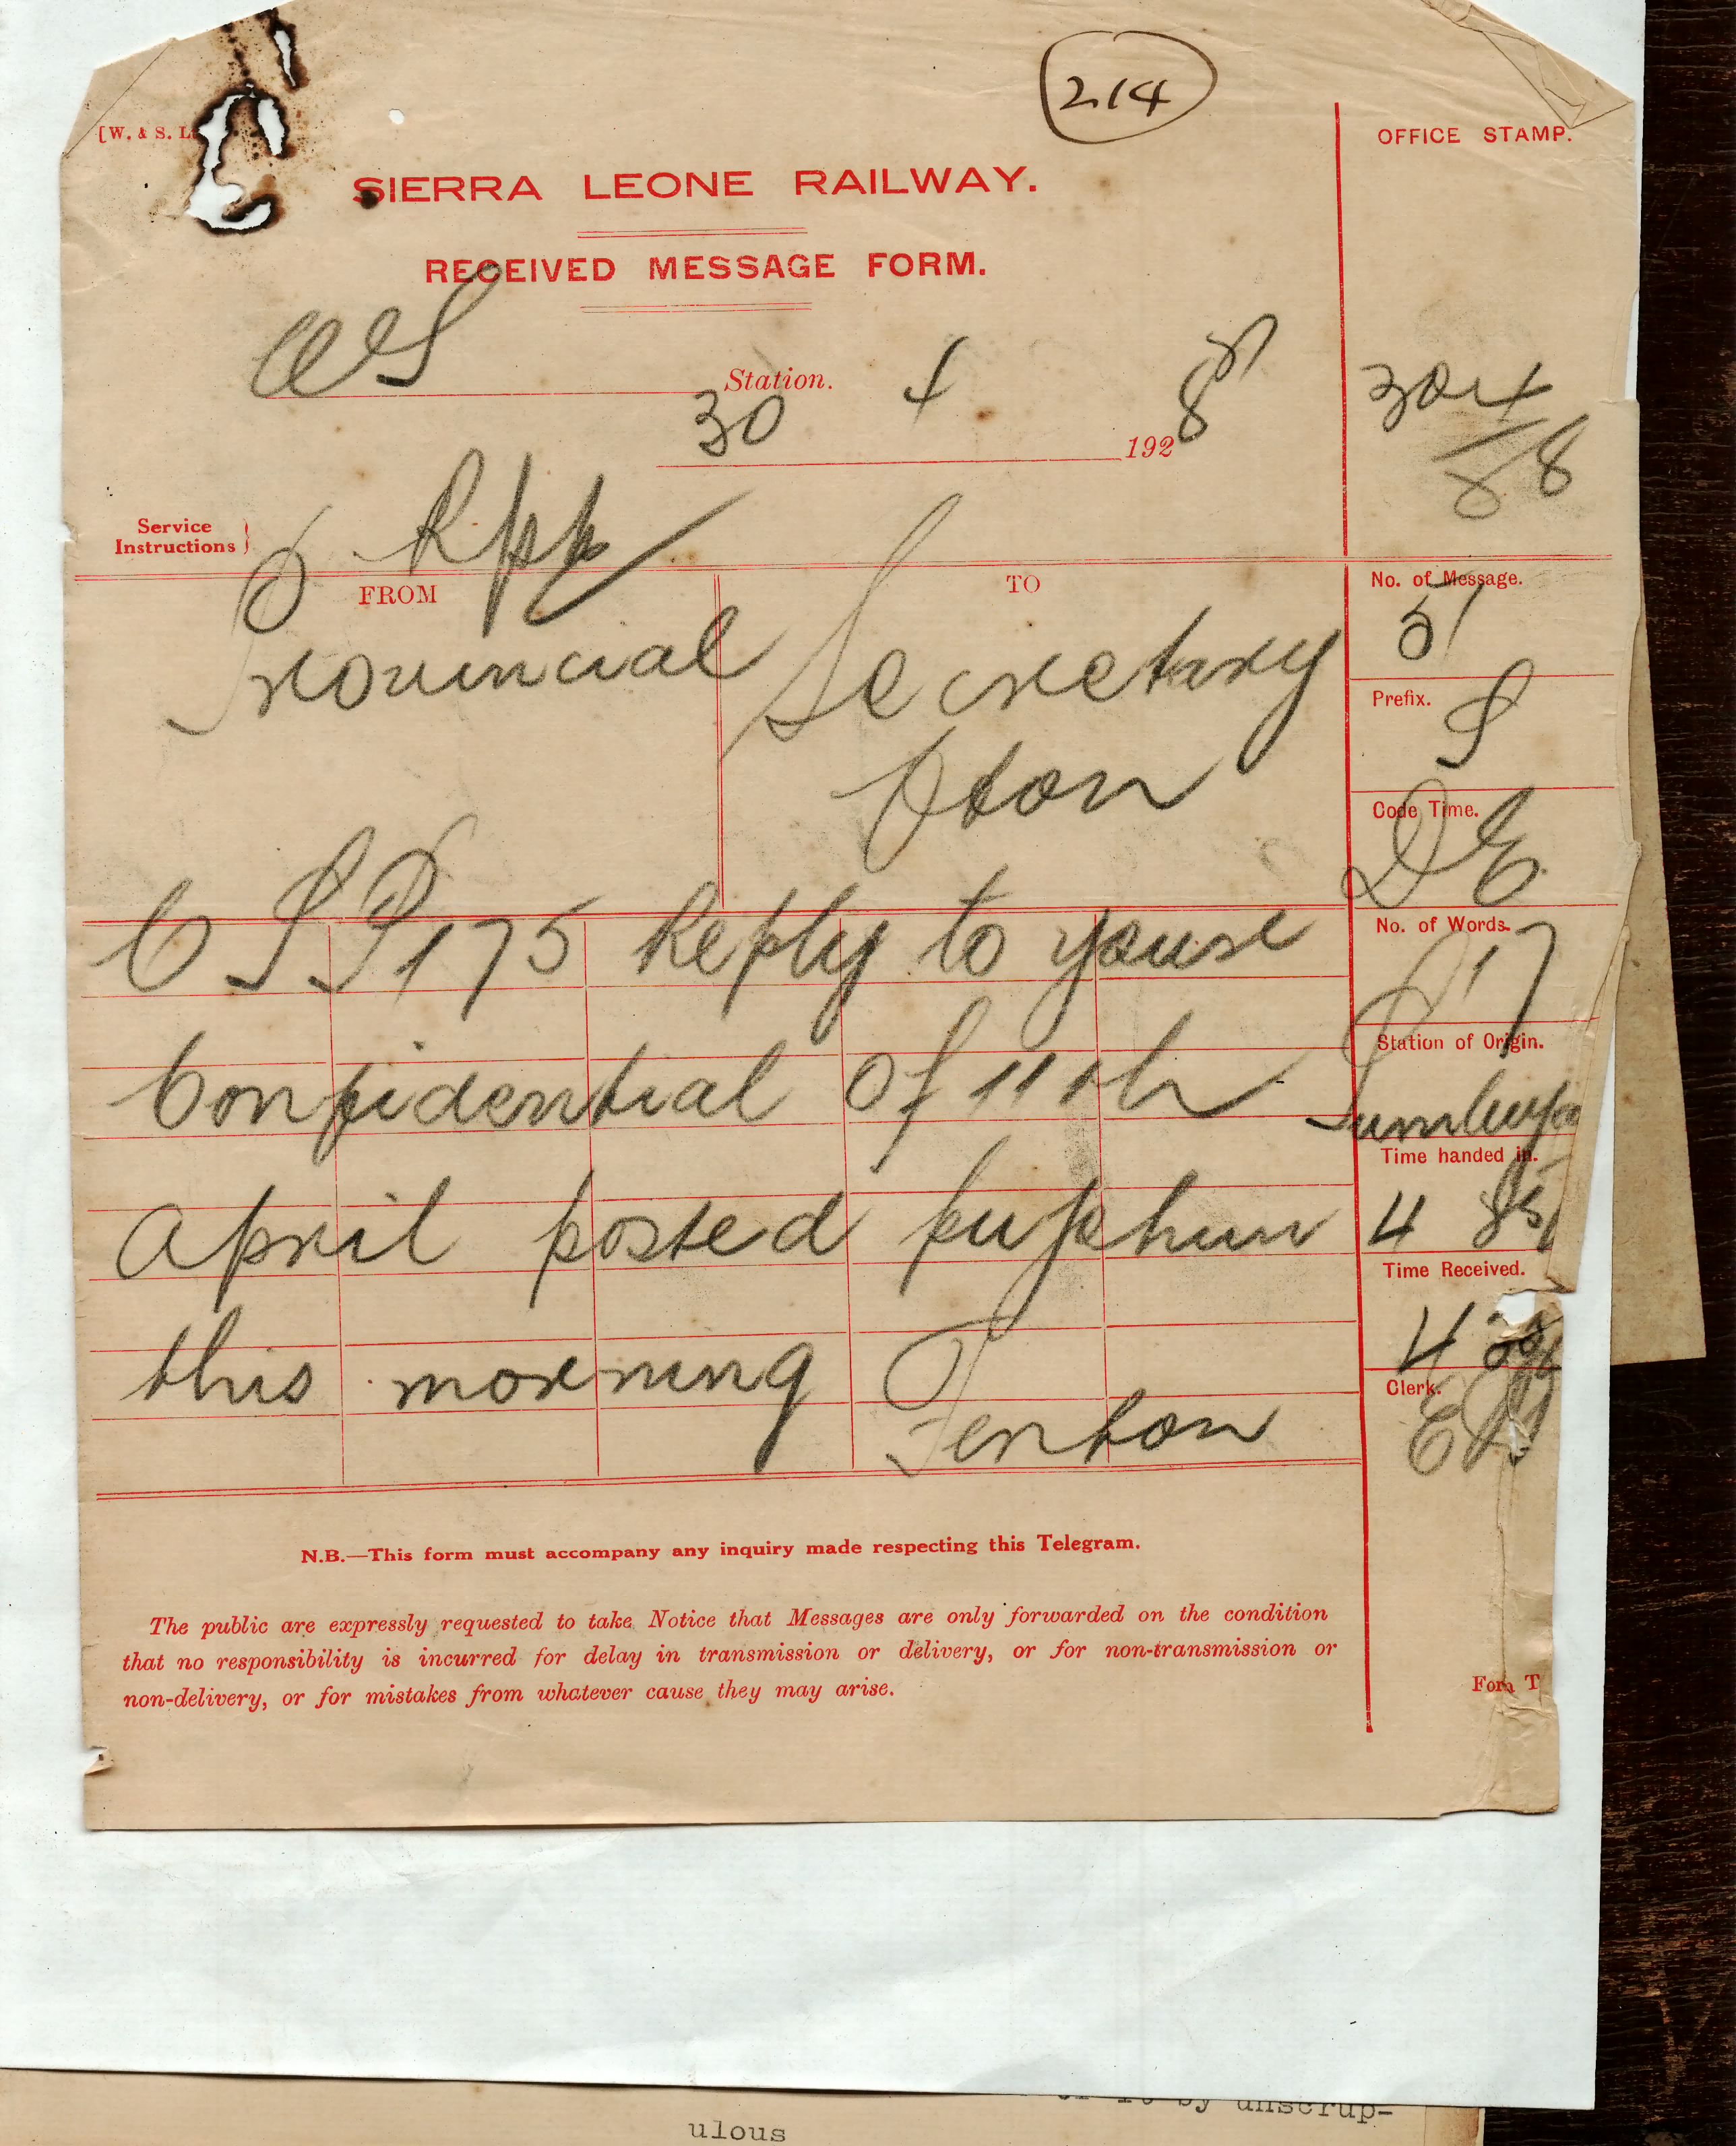 214
[W. & S. L
OFFICE STAMP.
SIERRA LEONE RAILWAY.
RECEIVED MESSAGE FORM.
Station.
30 4 1928
30 4
28
Service
Instructions
FROM
TO
Provincial
Secretary
Fton
No. of Message.
51
Prefix.
S
Code Time.
DE
No. of Words.
17
Station of Origin.
Time handed in.
4
Time Received.
4
Clerk.
CSP175 Reply to your
Confidential of 11th
April posted pujehun
this morning
Fenton
N.B.—This form must accompany any inquiry made respecting this Telegram.
The public are expressly requested to take Notice that Messages are only forwarded on the condition
that no responsibility is incurred for delay in transmission or delivery, or for non-transmission or
non-delivery, or for mistakes from whatever cause they may arise.
T
by unscrup-
ulous